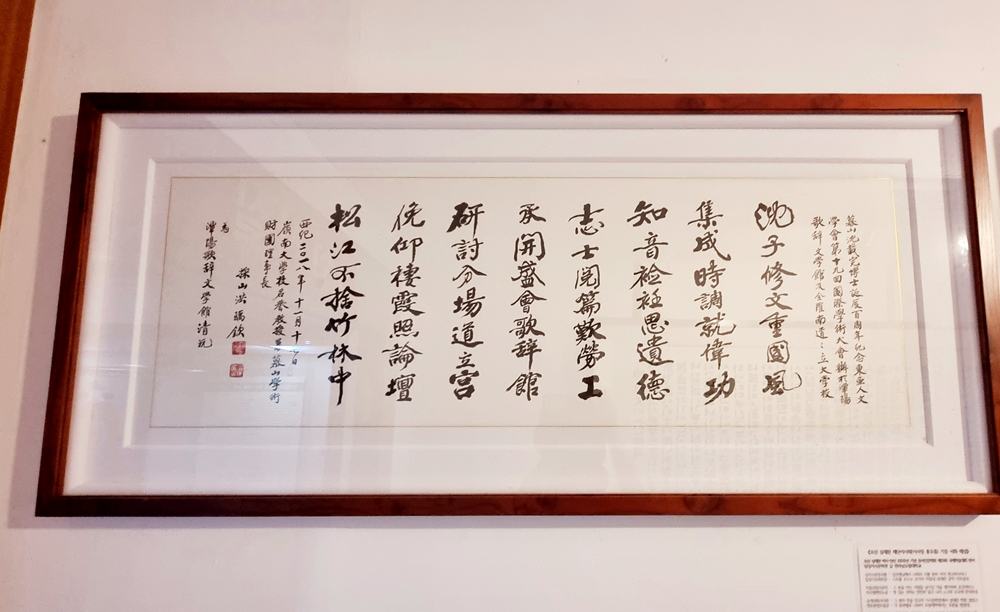 慕山沈載完博士誕辰百周年纪念東亞人文
學會第十九回國際學術大會辦於潭陽
歌辭文學館及全羅南道々立大學校
沈子修文重國風
集成時調就偉功
知音裣衽思遺德
志士閱篇歎勞工
承開盛會歌辭館
研討分場道立宮
俛仰棲霞照論壇
松江不捨竹林中
西纪二〇一八年十一月十七日
嶺南大學校名譽教授慕山學術
財團理事長
採山洪瑀欽
為
潭陽歌辭文學館清玩